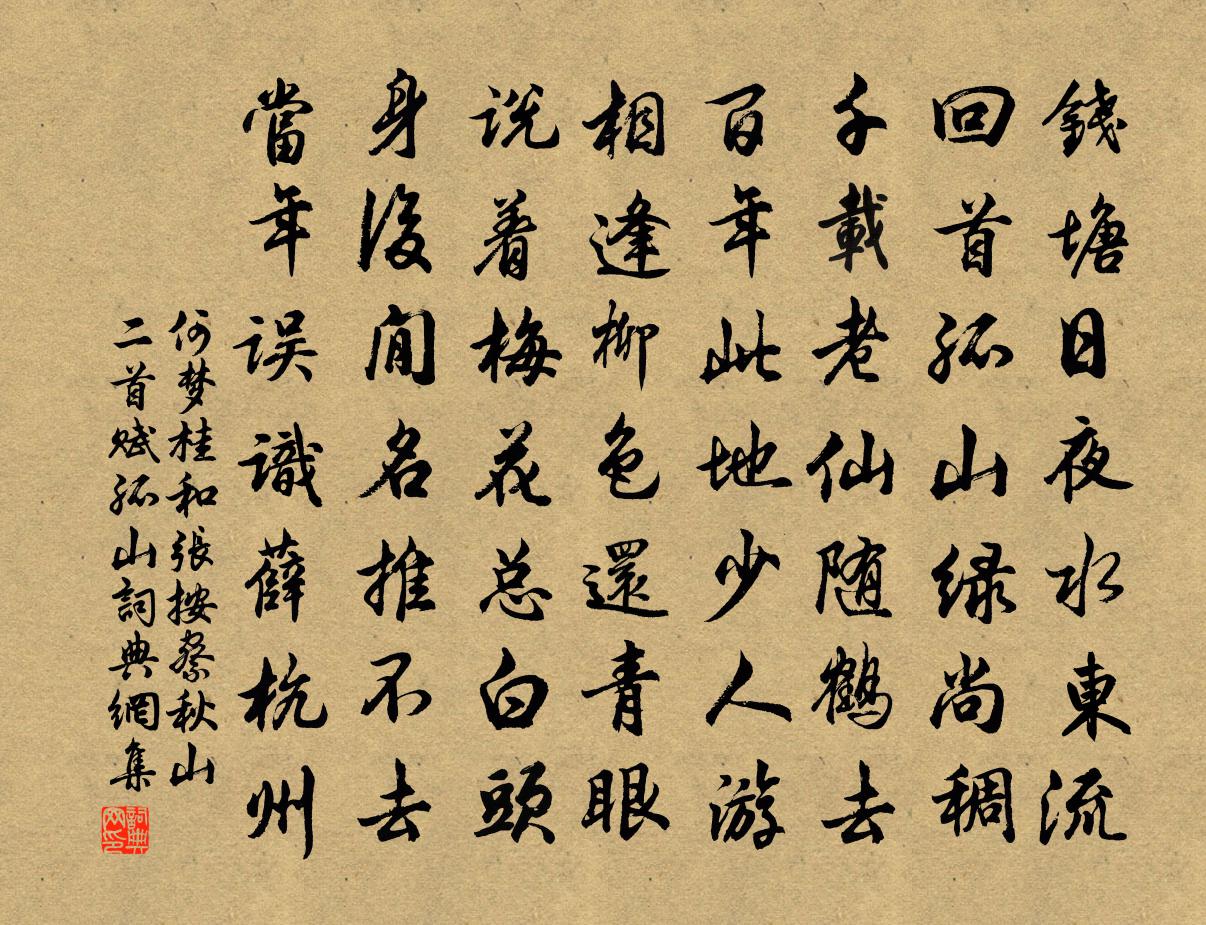 錢塘日夜水東流
回首孤山緑尚稠
千載老仙随鶴去
百年此地少人游
相逢柳色還青眼
説着梅花总白頭
身後閒名推不去
當年误識薛杭州
何梦桂和張按察秋山
二首赋孤山詞典網集
詞典
网印